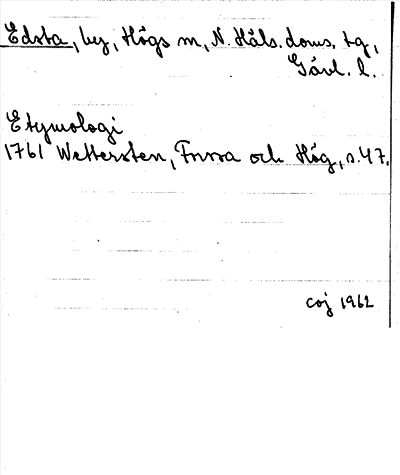 Edsta, by, Högs sn, N. Häls. doms. tg,
Gävl. l.
Etymologi
1761 Wettersten, Forssa och Hög, s. 47.
coj 1962